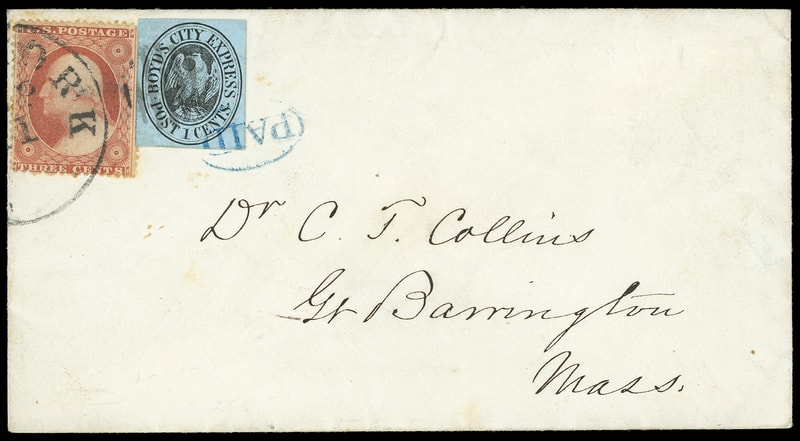 U.S. POSTAGE
THREE CENTS
BOYD'S CITY EXPRESS
POST 1 CENTS
PAID
Dr C. T. Collins
Gt Barrington
Mass.